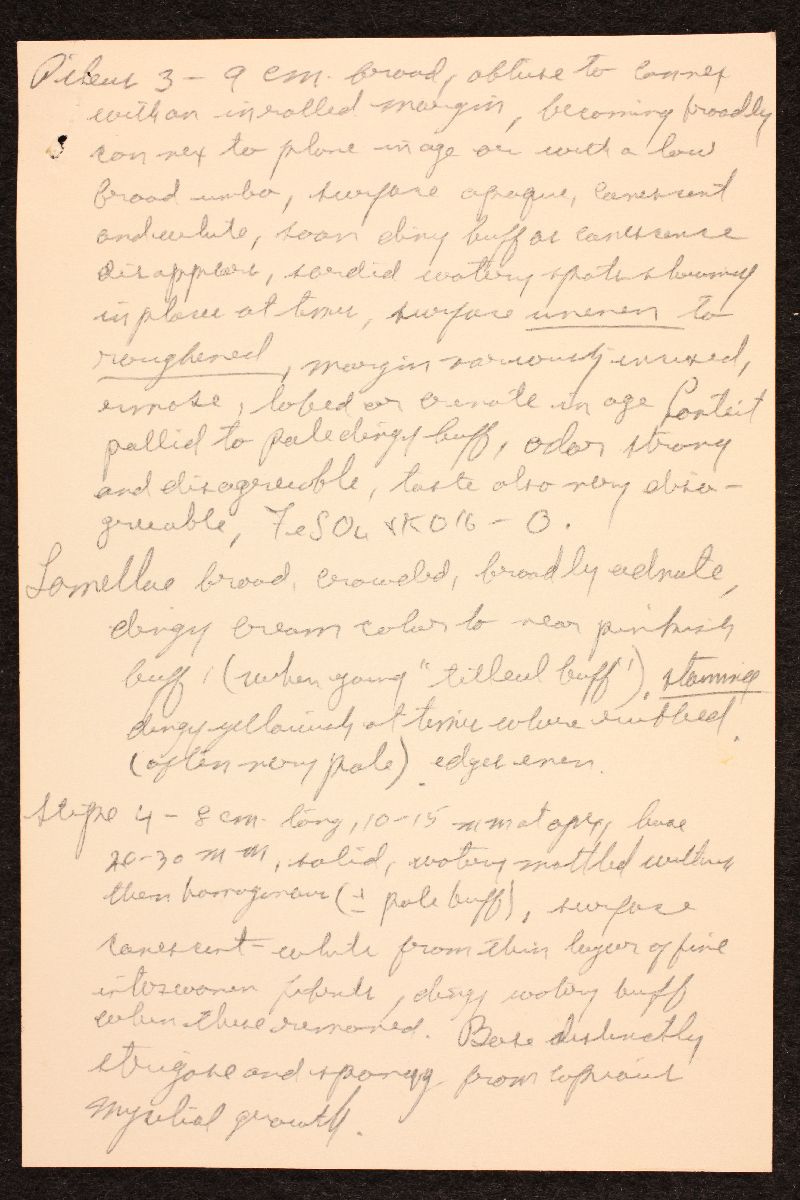 Pileus 3 - 9 cm. broad, obtuse to convex
with an inrolled margin, becoming broadly
convex to plane in age or with a low
broad umbo, surface opaque, canescent
and white, soon dingy buff as canescence
disappears, sordid watery spots showing
in places at times, surface uneven to
roughened, margin variously incised,
lobed or crenate in age Context
pallid to pale dingy buff, odor strong
and disagreeable, taste also very disa-
greeable, FeSO4 & KOH - O.
Lamellae broad, crowded, broadly adnate,
dingy cream color to near pinkish
buff, (when young "tilleul buff"), staining
dingy yellowish at times where rubbed
(often very pale). edges even.
Stipe 4 - 8 cm. long, 10-15 mm at apex, base
20-30 mm, solid, watery mottled within
then homogeneous (± pale buff), surface
canescent-white from thin layer of fine
interwoven fibrils, dingy watery buff
when these removed. Base distinctly
strigose and spongy from copious
mycelial growth.